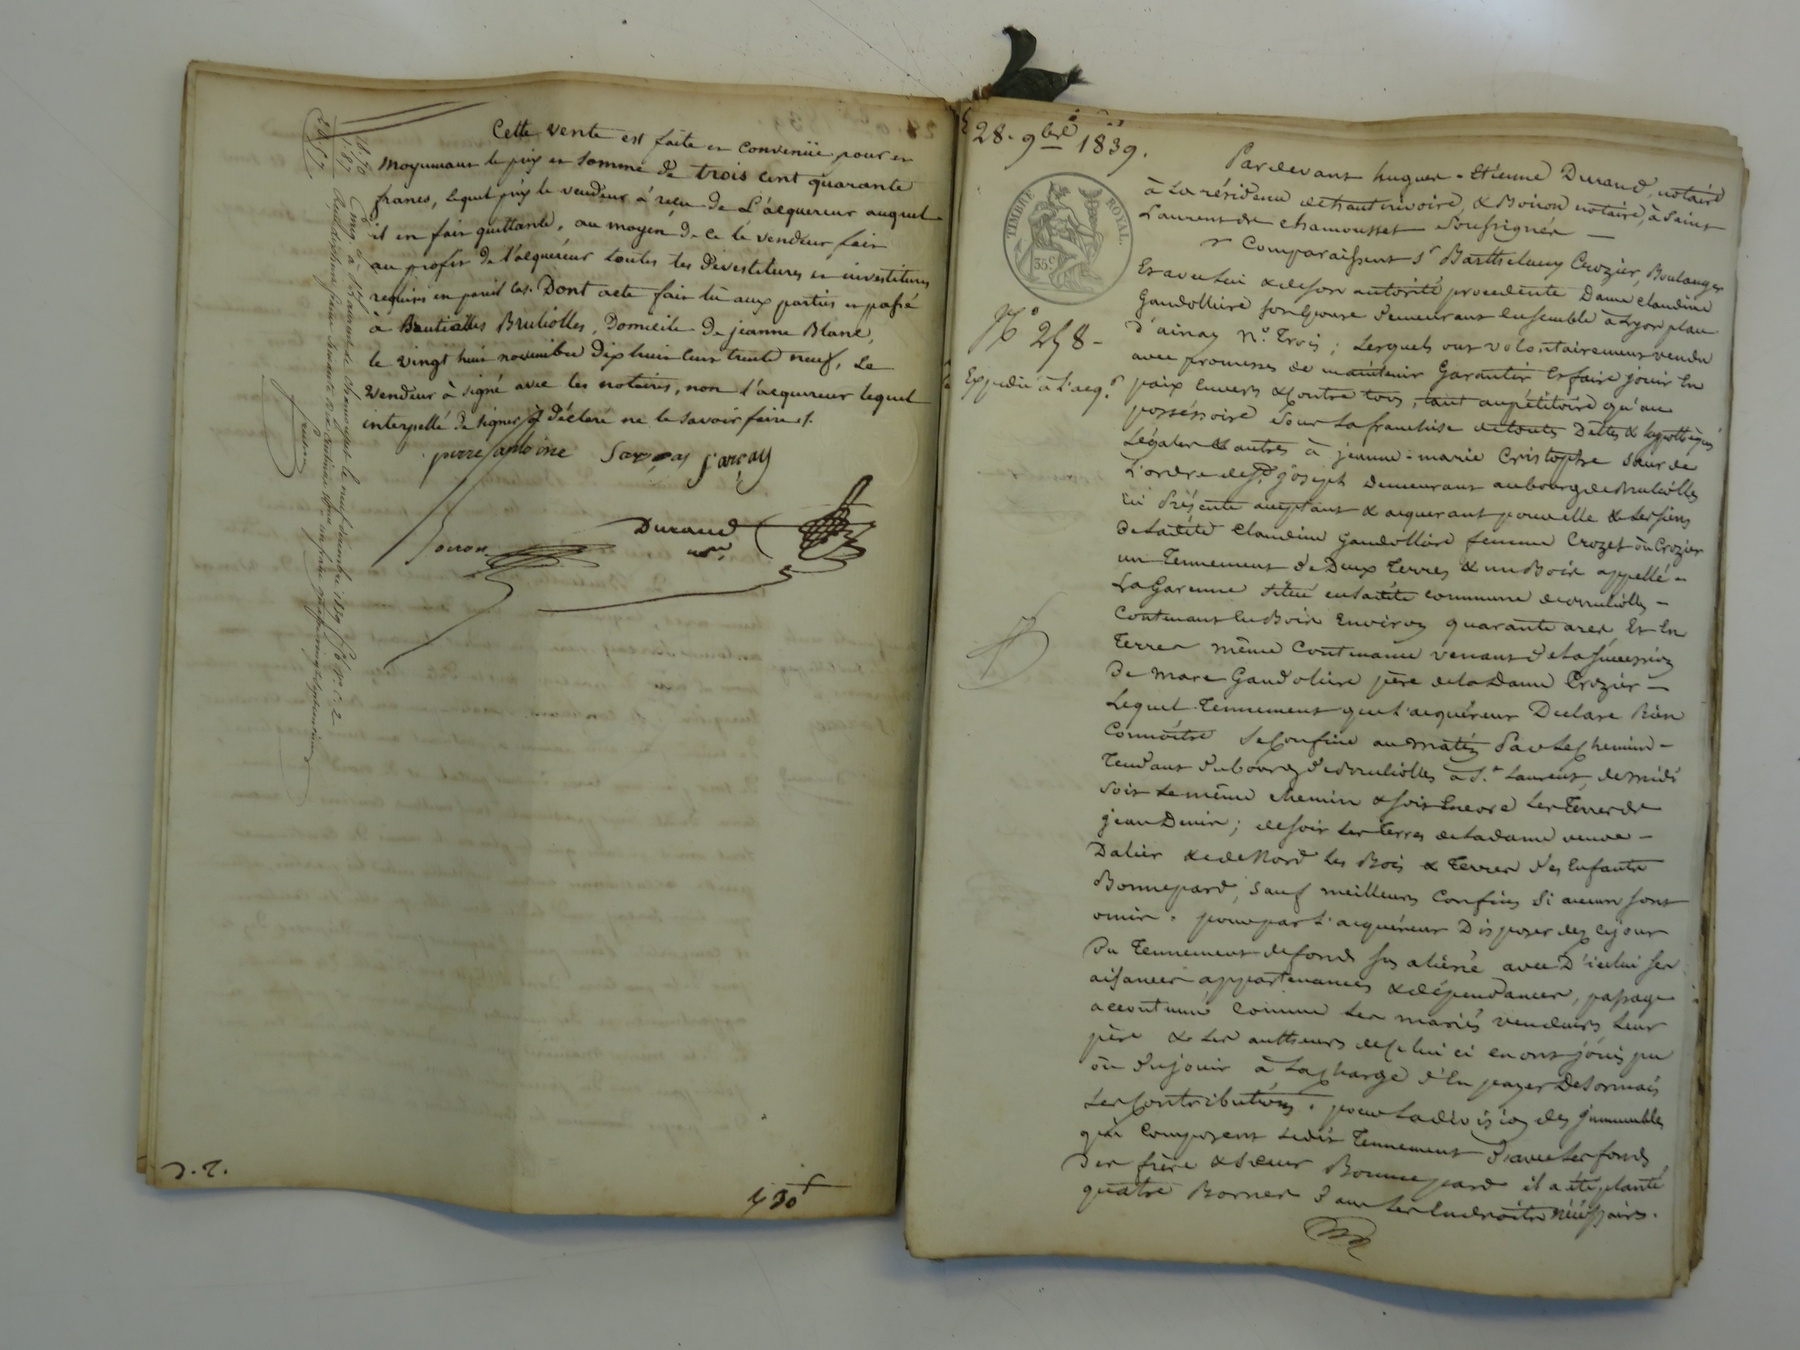 Cette vente est faite et convenüe pour et
moyennant le prix et somme de trois cent quarante
francs, lequel prix le vendeur à reçu de L'acquereur auquel
il en fait quittance, au moyen de ce le vendeur fait
au profit de l'acquéreur toutes les devestitures et investitures
requises en pareil cas. Dont acte fait lu aux parties et passé
à Brulliolles, Domicile de jeanne Blanc,
le vingt huit novembre dix huit cent trente neuf, Le
vendeur à signé avec les notaires, non l'acquereur lequel
interpellé de signer à déclaré ne le savoir faire ./.
pierre antoine
Durand
nre
430
28. 9bre 1839.
TIMBRE ROYAL
35c
N° 258 -
Expédié à l'acq.r
Pardevant hugues-Etienne Durand, notaire
à La résidence de hauterivoire, & Boiron notaire, à Saint
Laurent de chamousset Soussignés —
Comparaissent Sr Barthélemy Crozier, Boulanger
Et avec Lui & de Son autorité procedente Dame claudine
Gandollière son Epouse demeurant Ensemble à Lyon place
d'ainay N.° Trois ; Lesquels ont volontairement vendu
avec promesses de maintenir Garantir Et faire jouir En
paix Envers & Contre tous, tant au pétitoire qu'au
posséssoire Sous La franchise de toutes Dettes & hypothèques
Légales & autres à jeanne-marie Cristophe Sœur de
L'ordre de St joseph Demeurant au bourg de Brulliolles
ici Présente acceptant & acquerant pour elle & Les siens
De Ladite Claudine Gandollière femme Crozet ou Crozier
un Tennement de Deux Terres & un Bois appellé -
La Garenne Situé en Ladite commune de Brulliolles -
Contenant En Bois Environ quarante ares, Et En
Terres même Contenance venant de La Succession
De Marc Gandolière père de La Dame Crozier —
Lequel Tennement que L'acquéreur Declare Bien
Connoître Se Confine au matin Par Le Chemin -
Tendant du bourg de Brulliolles à St Laurent, de midi
Soit Le même chemin & soit Encore Les Terres de
jean Denis ; de soir Les Terres de La dame veuve -
Dalier & de Nord Les Bois & Terres des Enfants
Bonnepard, Sauf meilleurs Confins Si aucun sont
omis. pour par L'acquéreur Disposer dez Ce jour
Du Tennement de fonds Sus aliéné avec D'icelui Ses
aisances appartenances & dépendances, passage
accoutumé Comme Les mariés vendeurs Leur
père & Les autheurs de Celui ci en ont jouis pu
ou du jouir à La Charge d'En payer Desormais
Les Contributions. pour La division des jmmeubles
qui Composent Ledit Tennement d'avec Les fonds
Des frère & Sœur Bonnepard il a été planté
quatre Bornes dans Les Endroits nécéssaires.